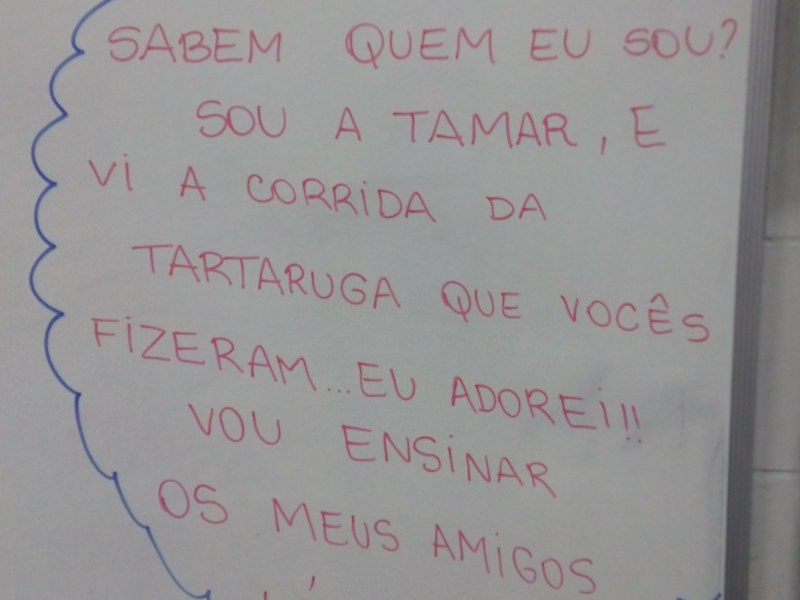 SABEM QUEM EU SOU?
SOU A TAMAR, E
Vi A CORRiDA DA
TARTARUGA QUE VOCÊS
FiZERAM... EU ADOREi!!
VOU ENSiNAR
OS MEUS AMiGOS